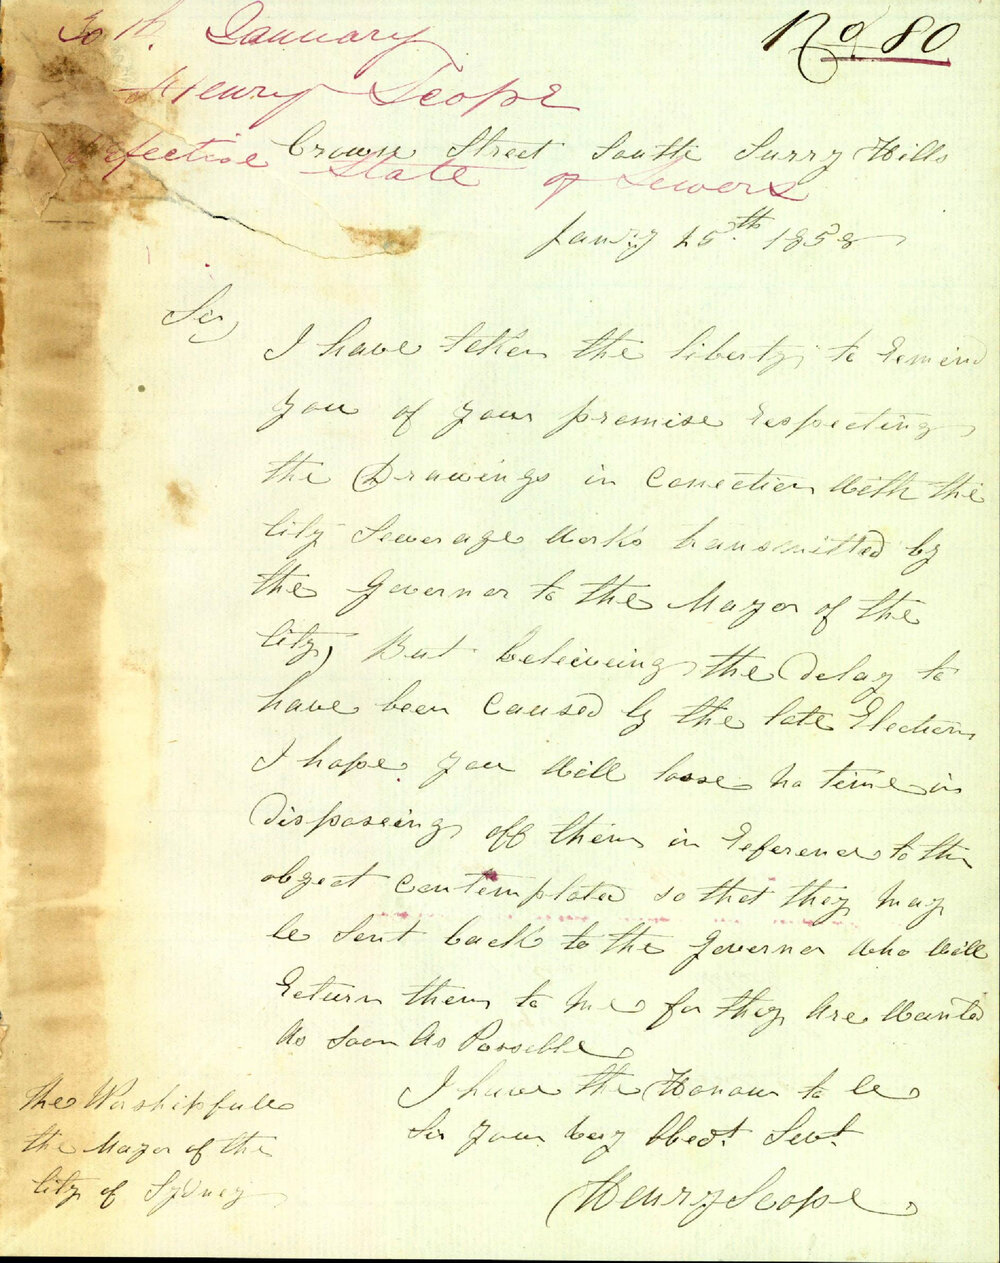 No 80
30th. January
Henry Scope
Defective State of Sewers
Crown Street South Surry Hills
Janry 25th. 1858
Sir,
I have taken the liberty to remind
you of your promise respecting
the Drawings in Conection With the
City Sewerage Works transmitted by
the Governor to the Mayor of the
City, But beleiveing the Delay to
have been Caused by the late Election
I hope you Will loose no time in
Disposeing off them in reference to the
object Contemplated so that they may
be sent back to the Governor Who Will
return them to me for they Are Wanted
As soon As Possible
I have the Honour to be
Sir your very Obedt. Servt.
Henry Scope
The Worshipfull
the Mayor of the
City of Sydney